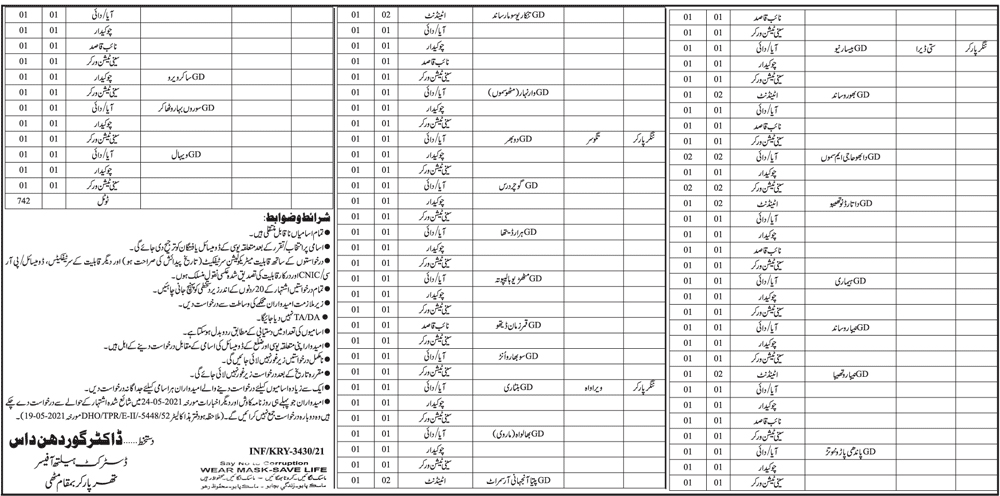 نائب قاصد 01 01
سینی ٹیشن ورکر 01 01
ننگرپارکر ستی ڈیرا GD بیسارنیو آیا/دائی 01 01
چوکیدار 01 01
سینی ٹیشن ورکر 01 01
GD بھوروساند اٹینڈنٹ 02 01
آیا/دائی 01 01
نائب قاصد 01 01
سینی ٹیشن ورکر 01 01
GD دابھوحاجی ایم سموں آیا/دائی 02 02
چوکیدار 01 01
سینی ٹیشن ورکر 02 02
GD داتارڈنوتھیبو اٹینڈنٹ 02 01
آیا/دائی 01 01
چوکیدار 01 01
سینی ٹیشن ورکر 01 01
GD ہیماری آیا/دائی 01 01
چوکیدار 01 01
سینی ٹیشن ورکر 01 01
GD بھیاروساند آیا/دائی 01 01
چوکیدار 01 01
سینی ٹیشن ورکر 01 01
GD اٹینڈنٹ 02 01
آیا/دائی 01 01
چوکیدار 01 01
نائب قاصد 01 01
سینی ٹیشن ورکر 01 01
GD پاندھی آیا/دائی 01 01
چوکیدار 01 01
سینی ٹیشن ورکر 01 01
GD نکاریوسومارساند اٹینڈنٹ 02 01
آیا/دائی 01 01
چوکیدار 01 01
نائب قاصد 01 01
سینی ٹیشن ورکر 01 01
GD وارنہار(مٹھوسموں) آیا/دائی 01 01
چوکیدار 01 01
سینی ٹیشن ورکر 01 01
ننگرپارکر تگوسر GD دوبھر آیا/دائی 01 01
چوکیدار 01 01
سینی ٹیشن ورکر 01 01
GD گوچردرس آیا/دائی 01 01
چوکیدار 01 01
سینی ٹیشن ورکر 01 01
GD ہرارڈیتھا آیا/دائی 01 01
چوکیدار 01 01
سینی ٹیشن ورکر 01 01
GD آیا/دائی 01 01
چوکیدار 01 01
سینی ٹیشن ورکر 01 01
GD قمرزمان ڈیتھو نائب قاصد 01 01
سینی ٹیشن ورکر 01 01
GD سوبھاروآنڑ آیا/دائی 01 01
سینی ٹیشن ورکر 01 01
ننگرپارکر ویراواہ GD بتاری آیا/دائی 01 01
چوکیدار 01 01
سینی ٹیشن ورکر 01 01
GD بھالواہ(ماروی) آیا/دائی 01 01
چوکیدار 01 01
سینی ٹیشن ورکر 01 01
GD اٹینڈنٹ 02 01
آیا/دائی 01 01
چوکیدار 01 01
نائب قاصد 01 01
سینی ٹیشن ورکر 01 01
GD ساکرویرو چوکیدار 01 01
سینی ٹیشن ورکر 01 01
GD سوروں بہارہ ٹھاکر آیا/دائی 01 01
چوکیدار 01 01
سینی ٹیشن ورکر 01 01
GD ویہال آیا/دائی 01 01
چوکیدار 01 01
سینی ٹیشن ورکر 01 01
ٹوٹل 742
شرائط وضوابط:
● تمام اسامیاں ناقابل منتقلی ہیں۔
● اسامی پر انتخاب/تقرر کے بعد متعلقہ یوسی کے ڈومیسائل یافتگان کو ترجیح دی جائے گی۔
● درخواستوں کے ساتھ قابلیت میٹریکولیشن سرٹیفکیٹ (تاریخ پیدائش کی صراحت ہو) اور دیگر قابلیت کے سرٹیفکیٹس، ڈومیسائل/پی آر
سی/CNIC اور درکار قابلیت کی تصدیق شدہ عکسی نقول منسلک ہوں۔
● تمام درخواستیں اشتہار کے 20 روز کے اندر زیر دستخطی کو پہنچ جانی چاہئیں۔
● زیر ملازمت امیدواران محکمے کی وساطت سے درخواست دیں۔
● TA/DA نہیں دیا جائیگا۔
● اسامیوں کی تعداد میں دستیابی کے مطابق ردوبدل ہوسکتا ہے۔
● امیدوار اپنی متعلقہ یوسی اور ضلع کے ڈومیسائل کی اسامی کے مقابل درخواست دینے کے اہل ہیں۔
● نامکمل درخواستیں زیر غور نہیں لائی جائیں گی۔
● مقررہ تاریخ کے بعد درخواست زیر غور نہیں لائی جائے گی۔
● ایک سے زیادہ اسامیوں کیلئے درخواست دینے والے امیدواران ہر اسامی کیلئے جداگانہ درخواست دیں۔
● امیدواران جو پہلے ہی روزنامہ کاوش اور دیگر اخبارات مورخہ 24-05-2021 میں شائع شدہ اشتہار کے حوالے سے درخواست دے چکے
ہیں وہ دوبارہ درخواست جمع نہیں کرائیں گے۔ (ملاحظہ ہو دفتر ہذا کا لیٹر DHO/TPR/E-II/-5448/52 مورخہ 19-05-2021)
دستخط......ڈاکٹر گوردھن داس
ڈسٹرکٹ ہیلتھ آفیسر
تھرپارکر بمقام مٹھی
INF/KRY-3430/21
Say No to Corruption
WEAR MASK-SAVE LIFE